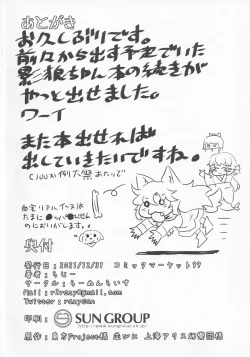 あとがき
お久しぶりです。
前々から出す予定でいた
影狼ちゃん本の続きが
やっと出せました。
ワーイ
また本出せれば
出していきたいですね。
(C100か例大祭あたりで
奥付
発行日：2021/12/31 コミックマーケット99
著者：らじー
サークル：らーめんらいす
印刷：SUN GROUP
www.sungroup.co.jp/
原作：東方Project様 主に 上海アリス幻樂団様